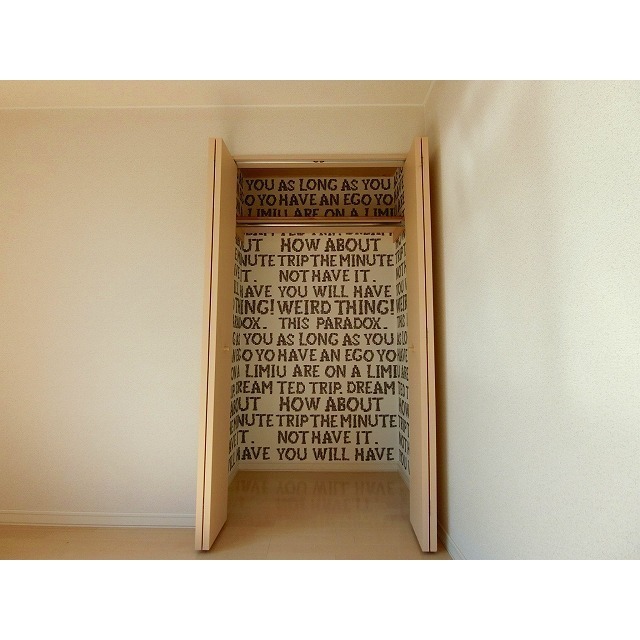 YOU AS LONG AS YOU
GO YO HAVE AN EGO YO
LIMIU ARE ON A LIMIU
TED TRIP. DREAM
UT HOW ABOUT
MINUTE TRIP THE MINUTE
IT. NOT HAVE IT.
HAVE YOU WILL HAVE
THING! WEIRD THING! WEIRD
DOX. THIS PARADOX. THIS
AS YOU AS LONG AS YOU AS
EGO YO HAVE AN EGO YO
A LIMIU ARE ON A LIMIU ARE
DREAM TED TRIP. DREAM TED T
ABOUT HOW ABOUT
MINUTE TRIP THE MINUTE TRIP
IT. NOT HAVE IT. NOT
HAVE YOU WILL HAVE YOU